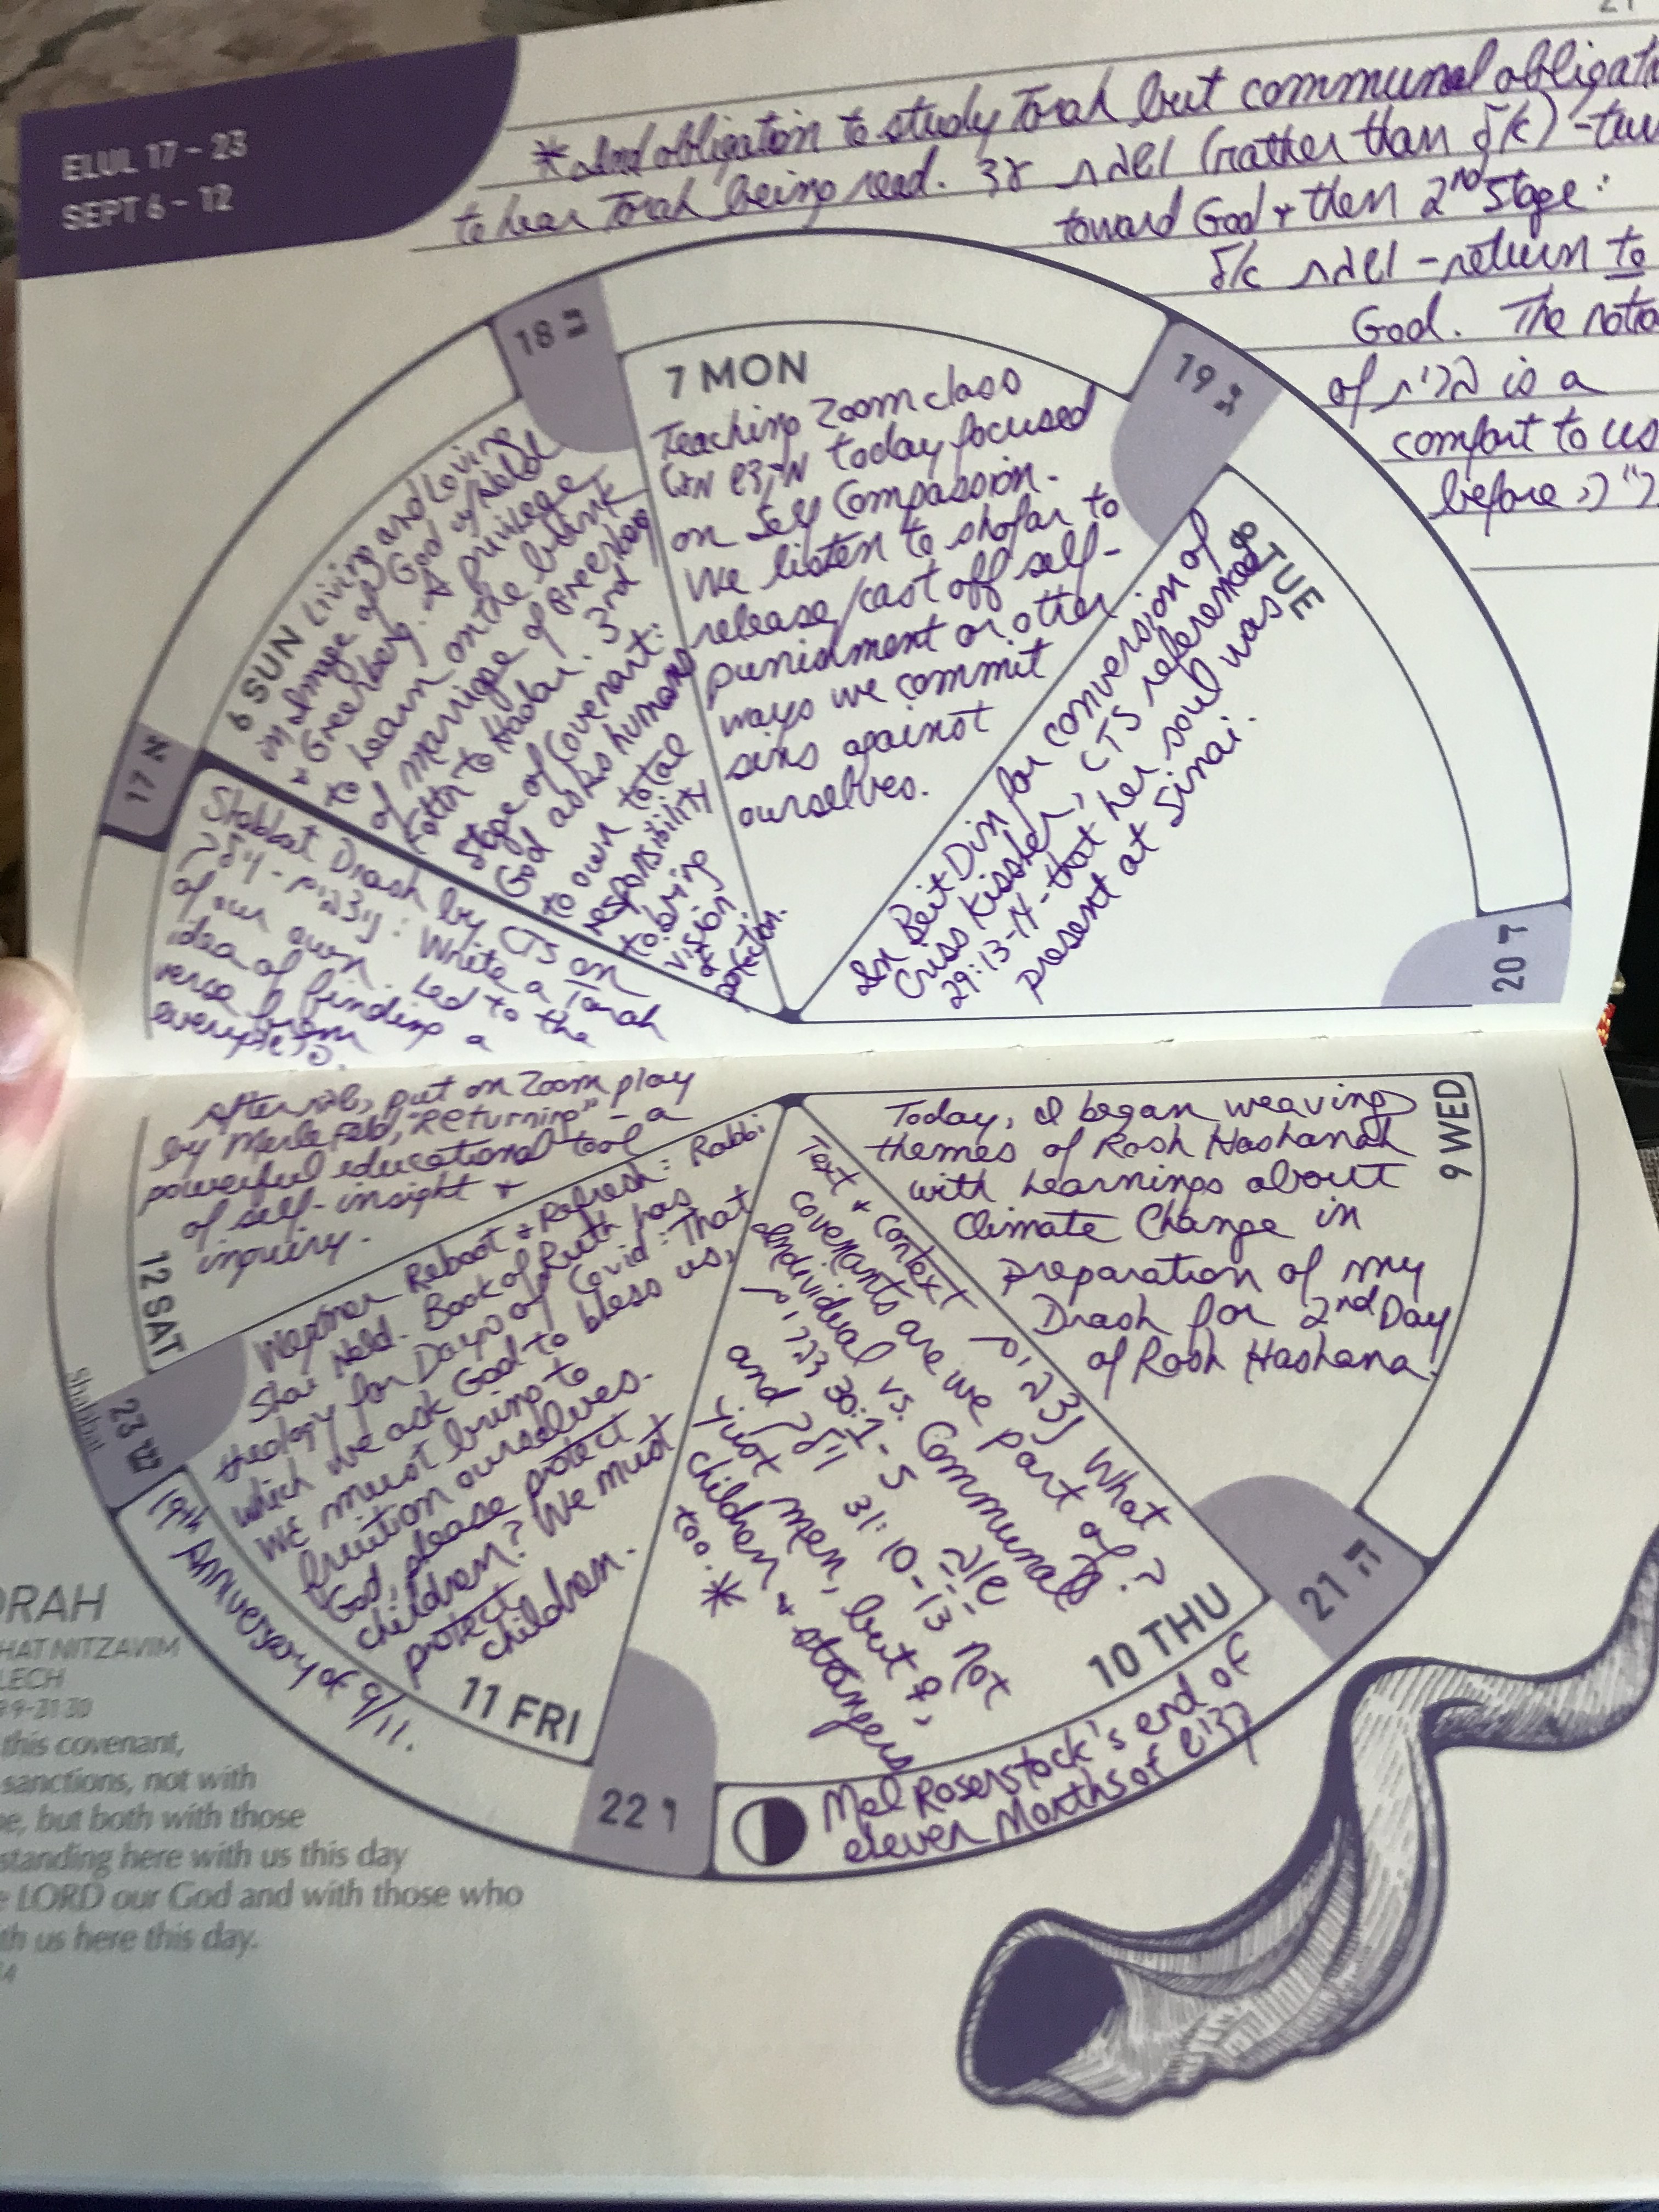 ELUL 17 - 23
SEPT 6 - 12
21
*Ind obligation to study Torah but communal obligat
to hear Torah being read. עד תשוב (rather than אל) - tur
toward God + then 2nd Stage:
אל תשוב - return to
God. The notio
of ברית is a
comfort to us
before
17 א
6 SUN
Living and Loving
in Image of God w/ Held
+ Greenberg. A privilege
to learn on the brink
of marriage of Greenberg
to Hadar. 3rd
Stage of Covenant:
God asks humans
to own total
responsibility
to bring
vision
to
18 ב
7 MON
Teaching Zoom class
today focused
on Self Compassion.
We listen to shofar to
release/cast off self-
punishment or other
ways we commit
sins against
ourselves.
19 ג
8 TUE
In Beit Din for conversion of
Criss Kissler, CTS referenced
29:13-14 - that her soul was
present at Sinai.
20 ד
9 WED
Today, I began weaving
themes of Rosh Hashanah
with Learnings about
Climate Change in
preparation of my
Drash for 2nd Day
of Rosh Hashana.
21 ה
10 THU
Text + Context נצבים What
covenants are we part of?
Individual vs. Communal
נצבים 30:1-5 שוב
and וילך 31:10-13 Not
just men, but ♀,
children + strangers
too. *
Mel Rosenstock's end of
eleven Months of קדיש
22 ו
11 FRI
Wexner Reboot + Refresh: Rabbi
Shai Held. Book of Ruth has
theology for Days of Covid: That
which we ask God to bless us,
we must bring to
fruition ourselves.
God, please protect
children? We must
protect
children.
19th Anniversary of 9/11.
23 ש
Shabbat
12 SAT
Shabbat Drash by CTS on
נצבים - וילך: Write a Torah
of our own. Led to the
idea of finding a
verse from
everyplace.
After שבת, put on Zoom play
by Merle Feld, "Returning" - a
powerful educational tool
of self-insight +
inquiry.
ORAH
HAT NITZAVIM
LECH
9:9-31:30
this covenant,
sanctions, not with
e, but both with those
standing here with us this day
e LORD our God and with those who
th us here this day.